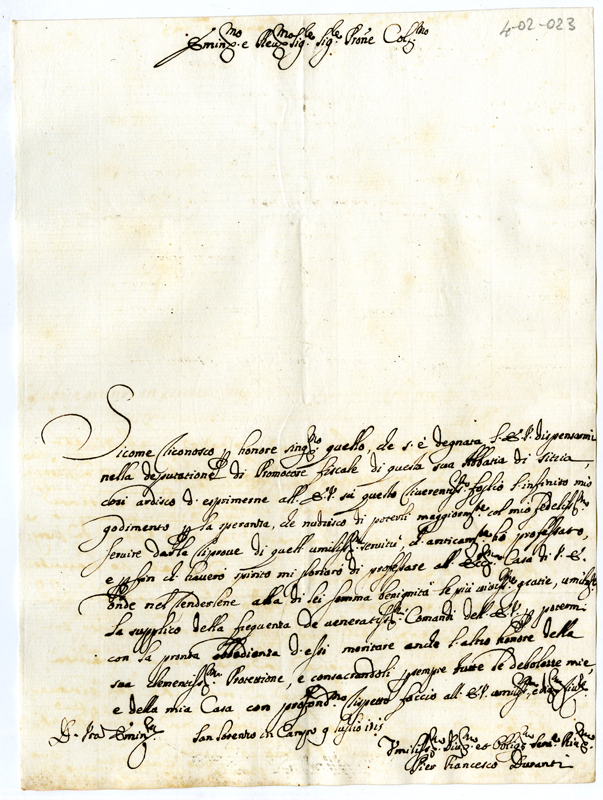 4-02-023
Emin.mo e Reu.mo Sig.re Sig.re Prone Col.mo
Sicome riconosco p honore sing.ro quello, che s'è degnata S. E. V. dispensarmi
nella deputatione di Promotore fiscale di questa sua Abbatia di Sitria,
cosi ardisco d'esprimerne all' E. V. in questo riuerentiss.o foglio l'infinito mio
godimento p la speranza, che nudrisco di poterli maggiorm.te col mio fedeliss.o
seruire darla riproue di quell' umiliss.a seruitù, ch' anticam.te hò professato,
e fin ch' hauerò spirito mi porterò di professare all' Ecc.ma Casa di V. E.
onde nel renderlene alla di lei somma benignità le più viuiss.e gratie, umilm.te
la supplico della frequenza de ueneratiss.i Comandi dell' E. V. p potermi
con la pronta obbedienza d'essi meritare anche l'altro honore della
sua clementiss.a Protettione, e consacrandoli p sempre tutte le debolezze mie,
e della mia Casa con profond.mo rispetto faccio all' E. V.
D. V.ra Emin.za
San Lorenzo in Campo 9 luglio
Vmiliss.o Diu.o et Oblig.o Seru.re
Pier Francesco Duranti